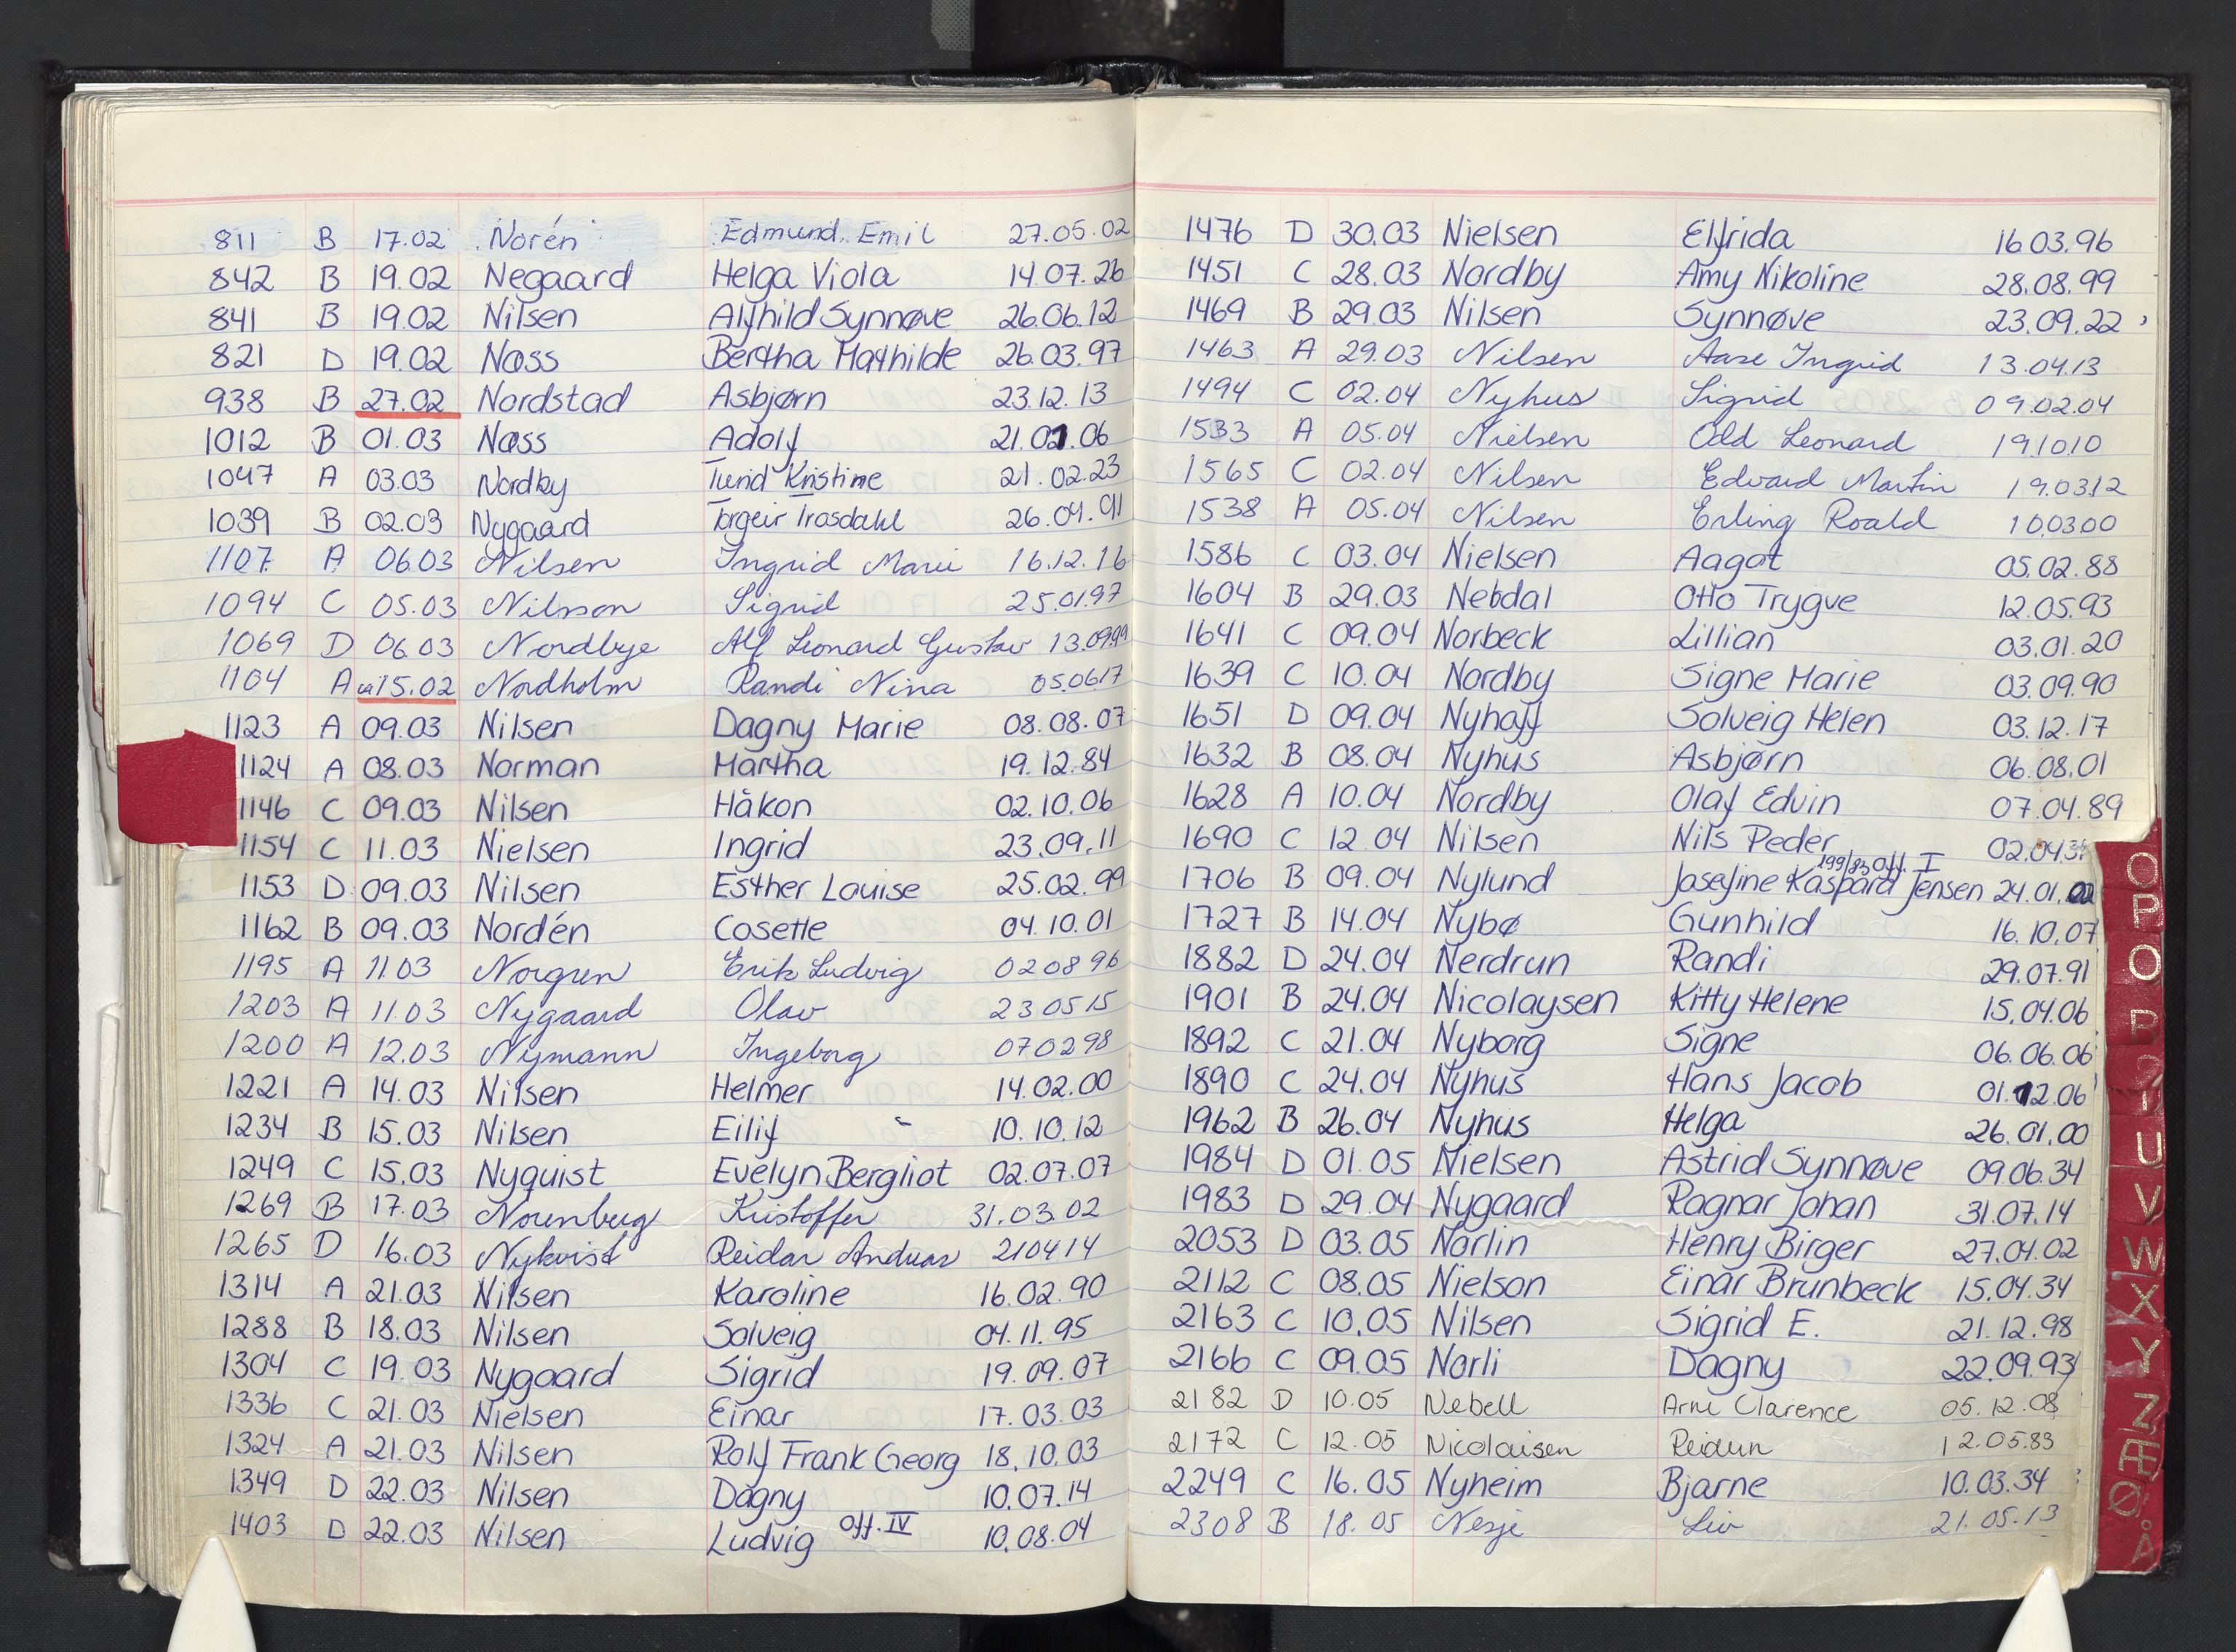 811 B 17.02 Norén Edmund Emil 27.05.02
842 B 19.02 Negaard Helga Viola 14.07.26
841 B 19.02 Nilsen Alfhild Synnøve 26.06.12
821 D 19.02 Næss Bertha Mathilde 26.03.97
938 B 27.02 Nordstad Asbjørn 23.12.13
1012 B 01.03 Næss Adolf 21.01.06
1047 A 03.03 Nordby Turid Kristine 21.02.23
1039 B 02.03 Nygaard Torgeir Trosdahl 26.09.91
1107 A 06.03 Nilsen Ingrid Marie 16.12.16
1094 C 05.03 Nilsson Sigrid 25.01.97
1069 D 06.03 Nordbye Alf Leonard Gustav 13.09.99
1104 A ca 15.02 Nordholm Randi Nina 05.06.17
1123 A 09.03 Nilsen Dagny Marie 08.08.07
1124 A 08.03 Norman Martha 19.12.84
1146 C 09.03 Nilsen Håkon 02.10.06
1154 C 11.03 Nielsen Ingrid 23.09.11
1153 D 09.03 Nilsen Esther Louise 25.02.99
1162 B 09.03 Nordén Cosette 04.10.01
1195 A 11.03 Norgren Erik Ludvig 020896
1203 A 11.03 Nygaard Olav 230515
1200 A 12.03 Nymann Ingeborg 070298
1221 A 14.03 Nilsen Helmer 14.02.00
1234 B 15.03 Nilsen Eilif 10.10.12
1249 C 15.03 Nyquist Evelyn Bergliot 02.07.07
1269 B 17.03 Norenberg Kristoffer 31.03.02
1265 D 16.03 Nykvist Reidar Andreas 210414
1314 A 21.03 Nilsen Karoline 16.02.90
1288 B 18.03 Nilsen Solveig 04.11.95
1304 C 19.03 Nygaard Sigrid 19.09.07
1336 C 21.03 Nielsen Einar 17.03.03
1324 A 21.03 Nilsen Rolf Frank Georg 18.10.03
1349 D 22.03 Nilsen Dagny 10.07.14
1403 D 22.03 Nilsen Ludvig Off. IV 10.08.04
1476 D 30.03 Nielsen Elfrida 16.03.96
1451 C 28.03 Nordby Amy Nikoline 28.08.99
1469 B 29.03 Nilsen Synnøve 23.09.22
1463 A 29.03 Nilsen Aase Ingrid 13.04.13
1494 C 02.04 Nyhus Sigrid 09.02.04
1533 A 05.04 Nielsen Odd Leonard 191010
1565 C 02.04 Nilsen Edvard Martin 19.0312
1538 A 05.04 Nilsen Erling Roald 100300
1586 C 03.04 Nielsen Aagot 05.02.88
1604 B 29.03 Nebdal Otto Trygve 12.05.93
1641 C 09.04 Norbeck Lillian 03.01.20
1639 C 10.04 Nordby Signe Marie 03.09.90
1651 D 09.04 Nyhoff Solveig Helen 03.12.17
1632 B 08.04 Nyhus Asbjørn 06.08.01
1628 A 10.04 Nordby Olaf Edvin 07.04.89
1690 C 12.04 Nilsen Nils Peder 02.04
199/83 Off. I
1706 B 09.04 Nylund Josefine Kaspara Jensen 24.01.02
1727 B 14.04 Nybø Gunhild 16.10.07
1882 D 24.04 Nerdrun Randi 29.07.91
1901 B 24.04 Nicolaysen Kitty Helene 15.04.06
1892 C 21.04 Nyborg Signe 06.06.06
1890 C 24.04 Nyhus Hans Jacob 01.12.06
1962 B 26.04 Nyhus Helga 26.01.00
1984 D 01.05 Nielsen Astrid Synnøve 09.06.34
1983 D 29.04 Nygaard Ragnar Johan 31.07.14
2053 D 03.05 Norlin Henry Birger 27.04.02
2112 C 08.05 Nielson Einar Brunbeck 15.04.34
2163 C 10.05 Nilsen Sigrid E. 21.12.98
2166 C 09.05 Norli Dagny 22.09.93
2182 D 10.05 Nebell Arne Clarence 05.12.08
2172 C 12.05 Nicolaisen Reidun 12.05.83
2249 C 16.05 Nyheim Bjarne 10.03.34
2308 B 18.05 Nesje Liv 21.05.13
O
P
O
P
U
V
W
X
Y
Z
Æ
Ø
Å